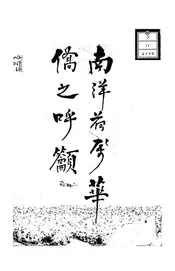 南洋荷屬華
僑之呼籲